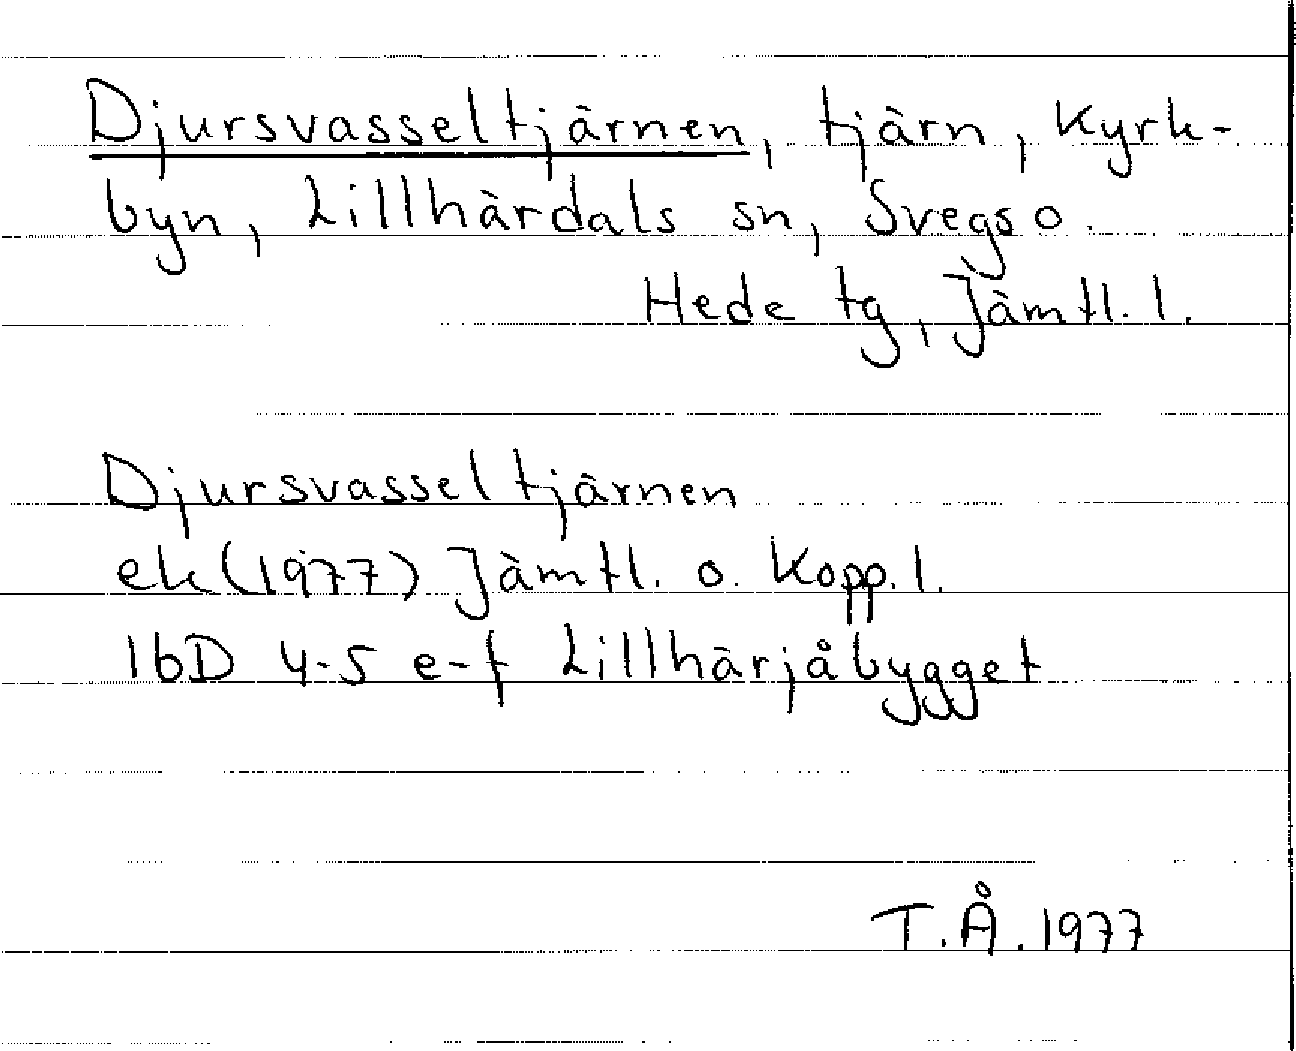 Djursvasseltjärnen, tjärn, Kyrk-
byn, Lillhärdals sn, Svegs o.
Hede tg, Jämtl. l.
Djursvasseltjärnen
ek (1977) Jämtl. o. Kopp. l.
16D 4-5 e-f Lillhärjåbygget
T.Å. 1977